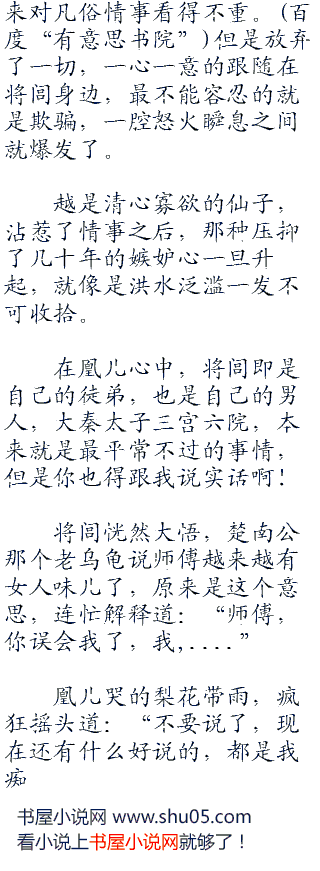 来对凡俗情事看得不重。(百
度“有意思书院”)但是放弃
了一切，一心一意的跟随在
将闾身边，最不能容忍的就
是欺骗，一腔怒火瞬息之间
就爆发了。
越是清心寡欲的仙子，
沾惹了情事之后，那种压抑
了几十年的嫉妒心一旦升
起，就像是洪水泛滥一发不
可收拾。
在凰儿心中，将闾即是
自己的徒弟，也是自己的男
人，大秦太子三宫六院，本
来就是最平常不过的事情，
但是你也得跟我说实话啊！
将闾恍然大悟，楚南公
那个老乌龟说师傅越来越有
女人味儿了，原来是这个意
思，连忙解释道：“师傅，
你误会我了，我,....”
凰儿哭的梨花带雨，疯
狂摇头道：“不要说了，现
在还有什么好说的，都是我
痴
书屋小说网 www.shu05.com
看小说上书屋小说网就够了！